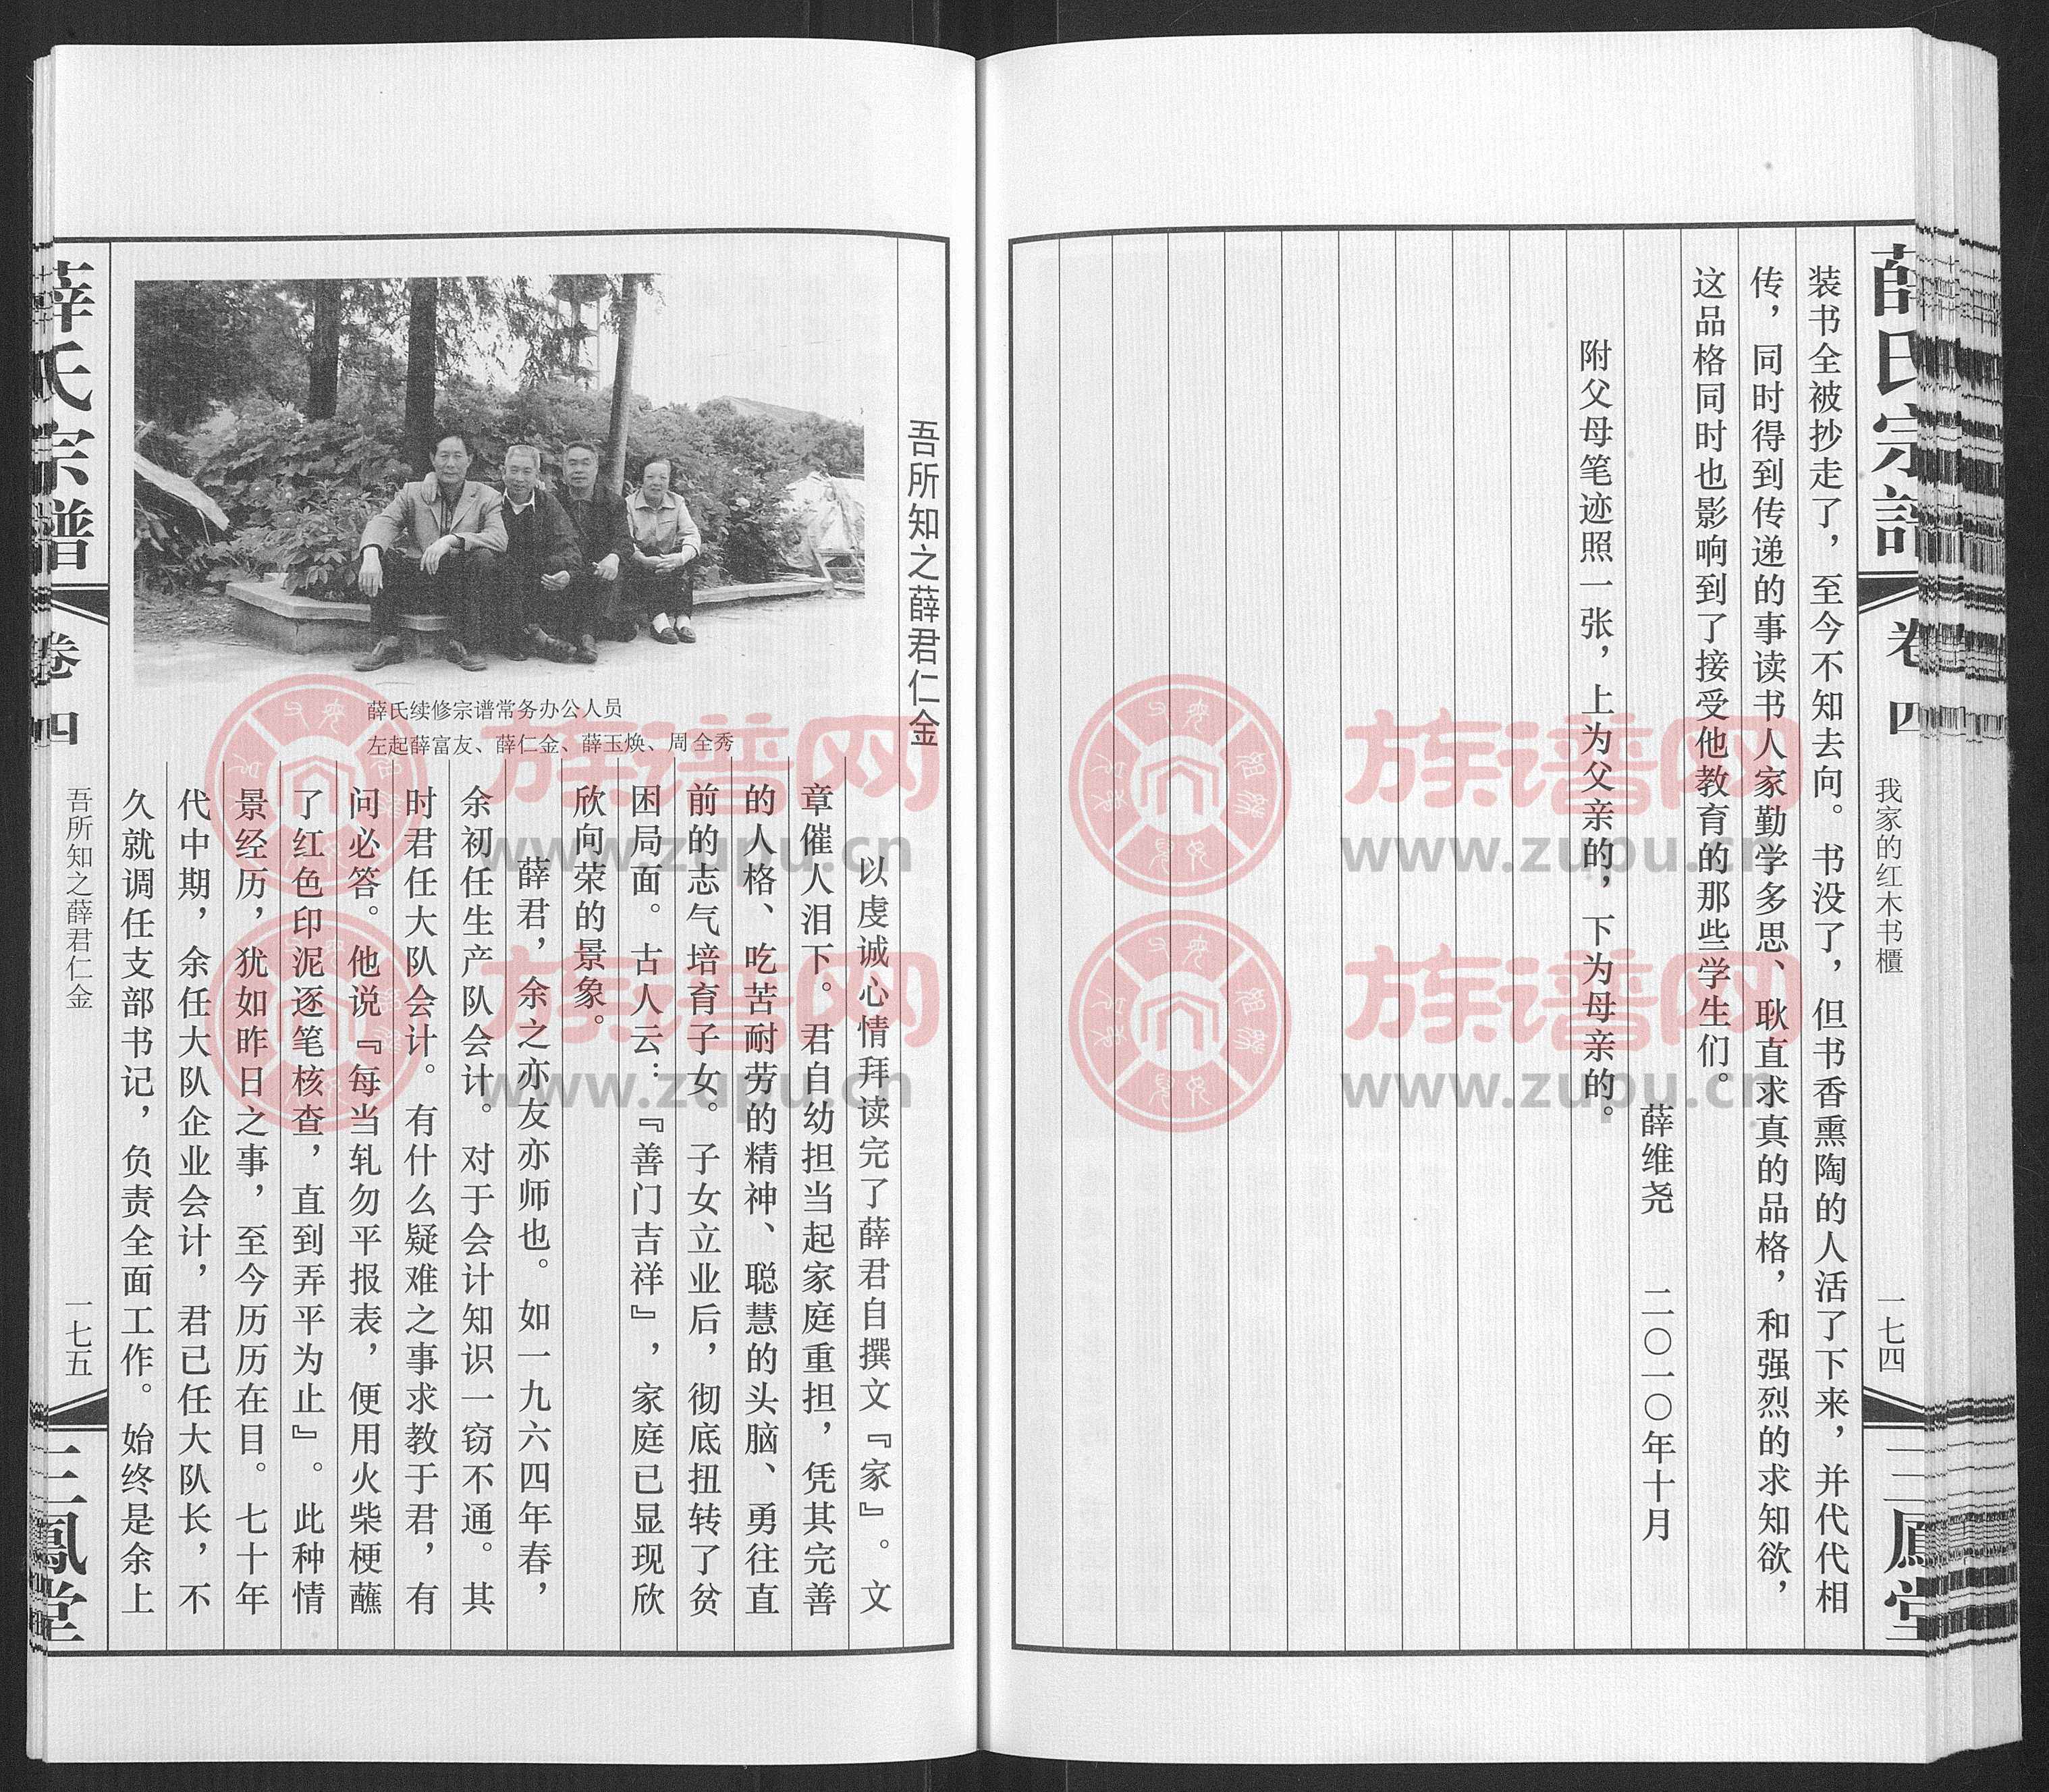 薛氏宗譜
卷四
我家的红木书櫃
一七四
三鳳堂
装书全被抄走了，至今不知去向。书没了，但书香熏陶的人活了下来，并代代相
传，同时得到传递的事读书人家勤学多思、耿直求真的品格，和强烈的求知欲，
这品格同时也影响到了接受他教育的那些学生们。
薛维尧 二〇一〇年十月
附父母笔迹照一张，上为父亲的，下为母亲的。
吾所知之薛君仁金
薛氏续修宗谱常务办公人员
左起薛富友、薛仁金、薛玉焕、周全秀
以虔诚心情拜读完了薛君自撰文『家』。文
章催人泪下。君自幼担当起家庭重担，凭其完善
的人格、吃苦耐劳的精神、聪慧的头脑、勇往直
前的志气培育子女。子女立业后，彻底扭转了贫
困局面。古人云：『善门吉祥』，家庭已显现欣
欣向荣的景象。
薛君，余之亦友亦师也。如一九六四年春，
余初任生产队会计。对于会计知识一窃不通。其
时君任大队会计。有什么疑难之事求教于君，有
问必答。他说『每当轧勿平报表，便用火柴梗蘸
了红色印泥逐笔核查，直到弄平为止』。此种情
景经历，犹如昨日之事，至今历历在目。七十年
代中期，余任大队企业会计，君已任大队长，不
久就调任支部书记，负责全面工作。始终是余上
薛氏宗譜
卷四
吾所知之薛君仁金
一七五
三鳳堂
族谱网
www.zupu.cn
族谱网
www.zupu.cn
族谱网
www.zupu.cn
族谱网
www.zupu.cn